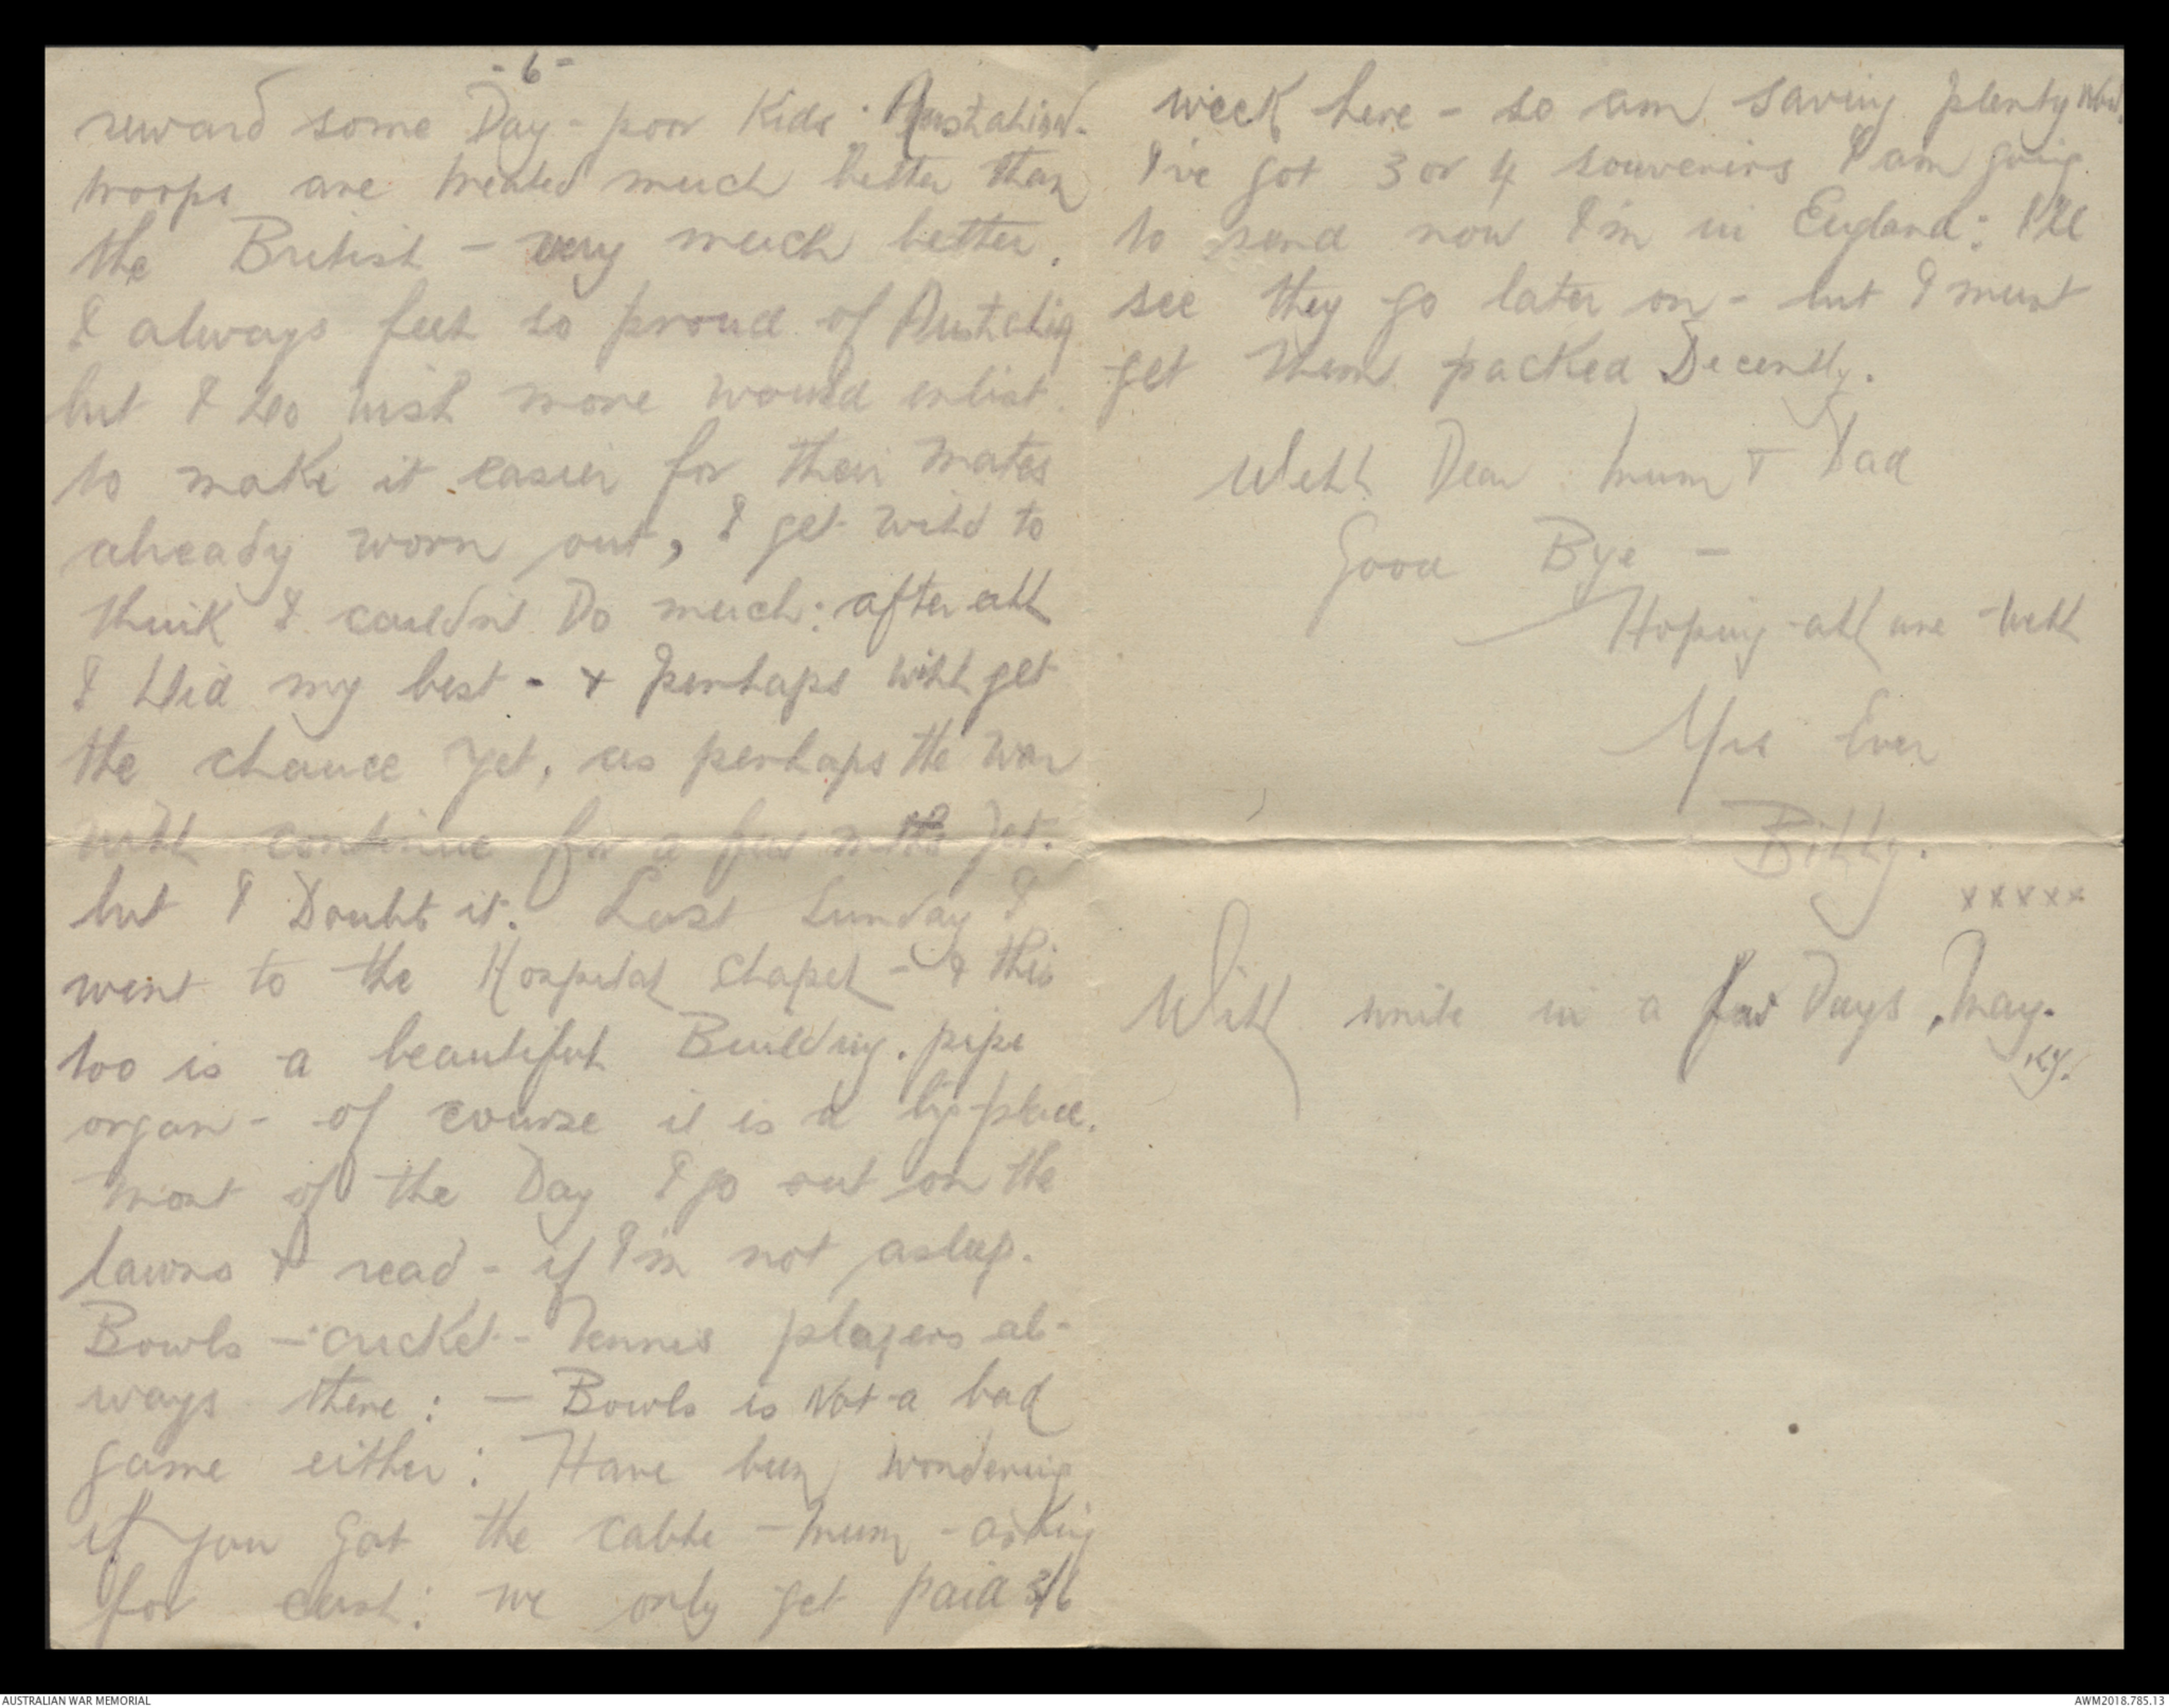 - 6 -
reward some Day - poor Kids. Australian
troops are treated much better than
the British - very much better.
I always feel so proud of Australia
but I do wish more would enlist
to make it easier for their mates
already worn out, I get wild to
think I couldn't Do much: after all
I Did my best - & perhaps will get
the chance yet, as perhaps the war
will continue for a few mths yet.
but I Doubt it. Last Sunday I
went to the Hospital Chapel - & this
too is a beautiful Building. pipe
organ - of course it is a big place.
most of the Day I go out on the
lawns & read - if I'm not asleep.
Bowls - cricket - Tennis players al-
ways there: - Bowls is Not a bad
game either: Have been wondering
if you got the cable - mum - asking
for cash: we only get paid 3/6
week here - so am saving plenty Now.
I've got 3 or 4 souvenirs I am going
to send now I'm in England: I'll
see they go later on - but I must
get them packed Decently.
Well Dear Mum & Dad
Good Bye -
Hoping all are well
Yrs Ever
Billy.
x x x x x
Will write in a few Days, May.
AUSTRALIAN WAR MEMORIAL
AWM2018.785.13